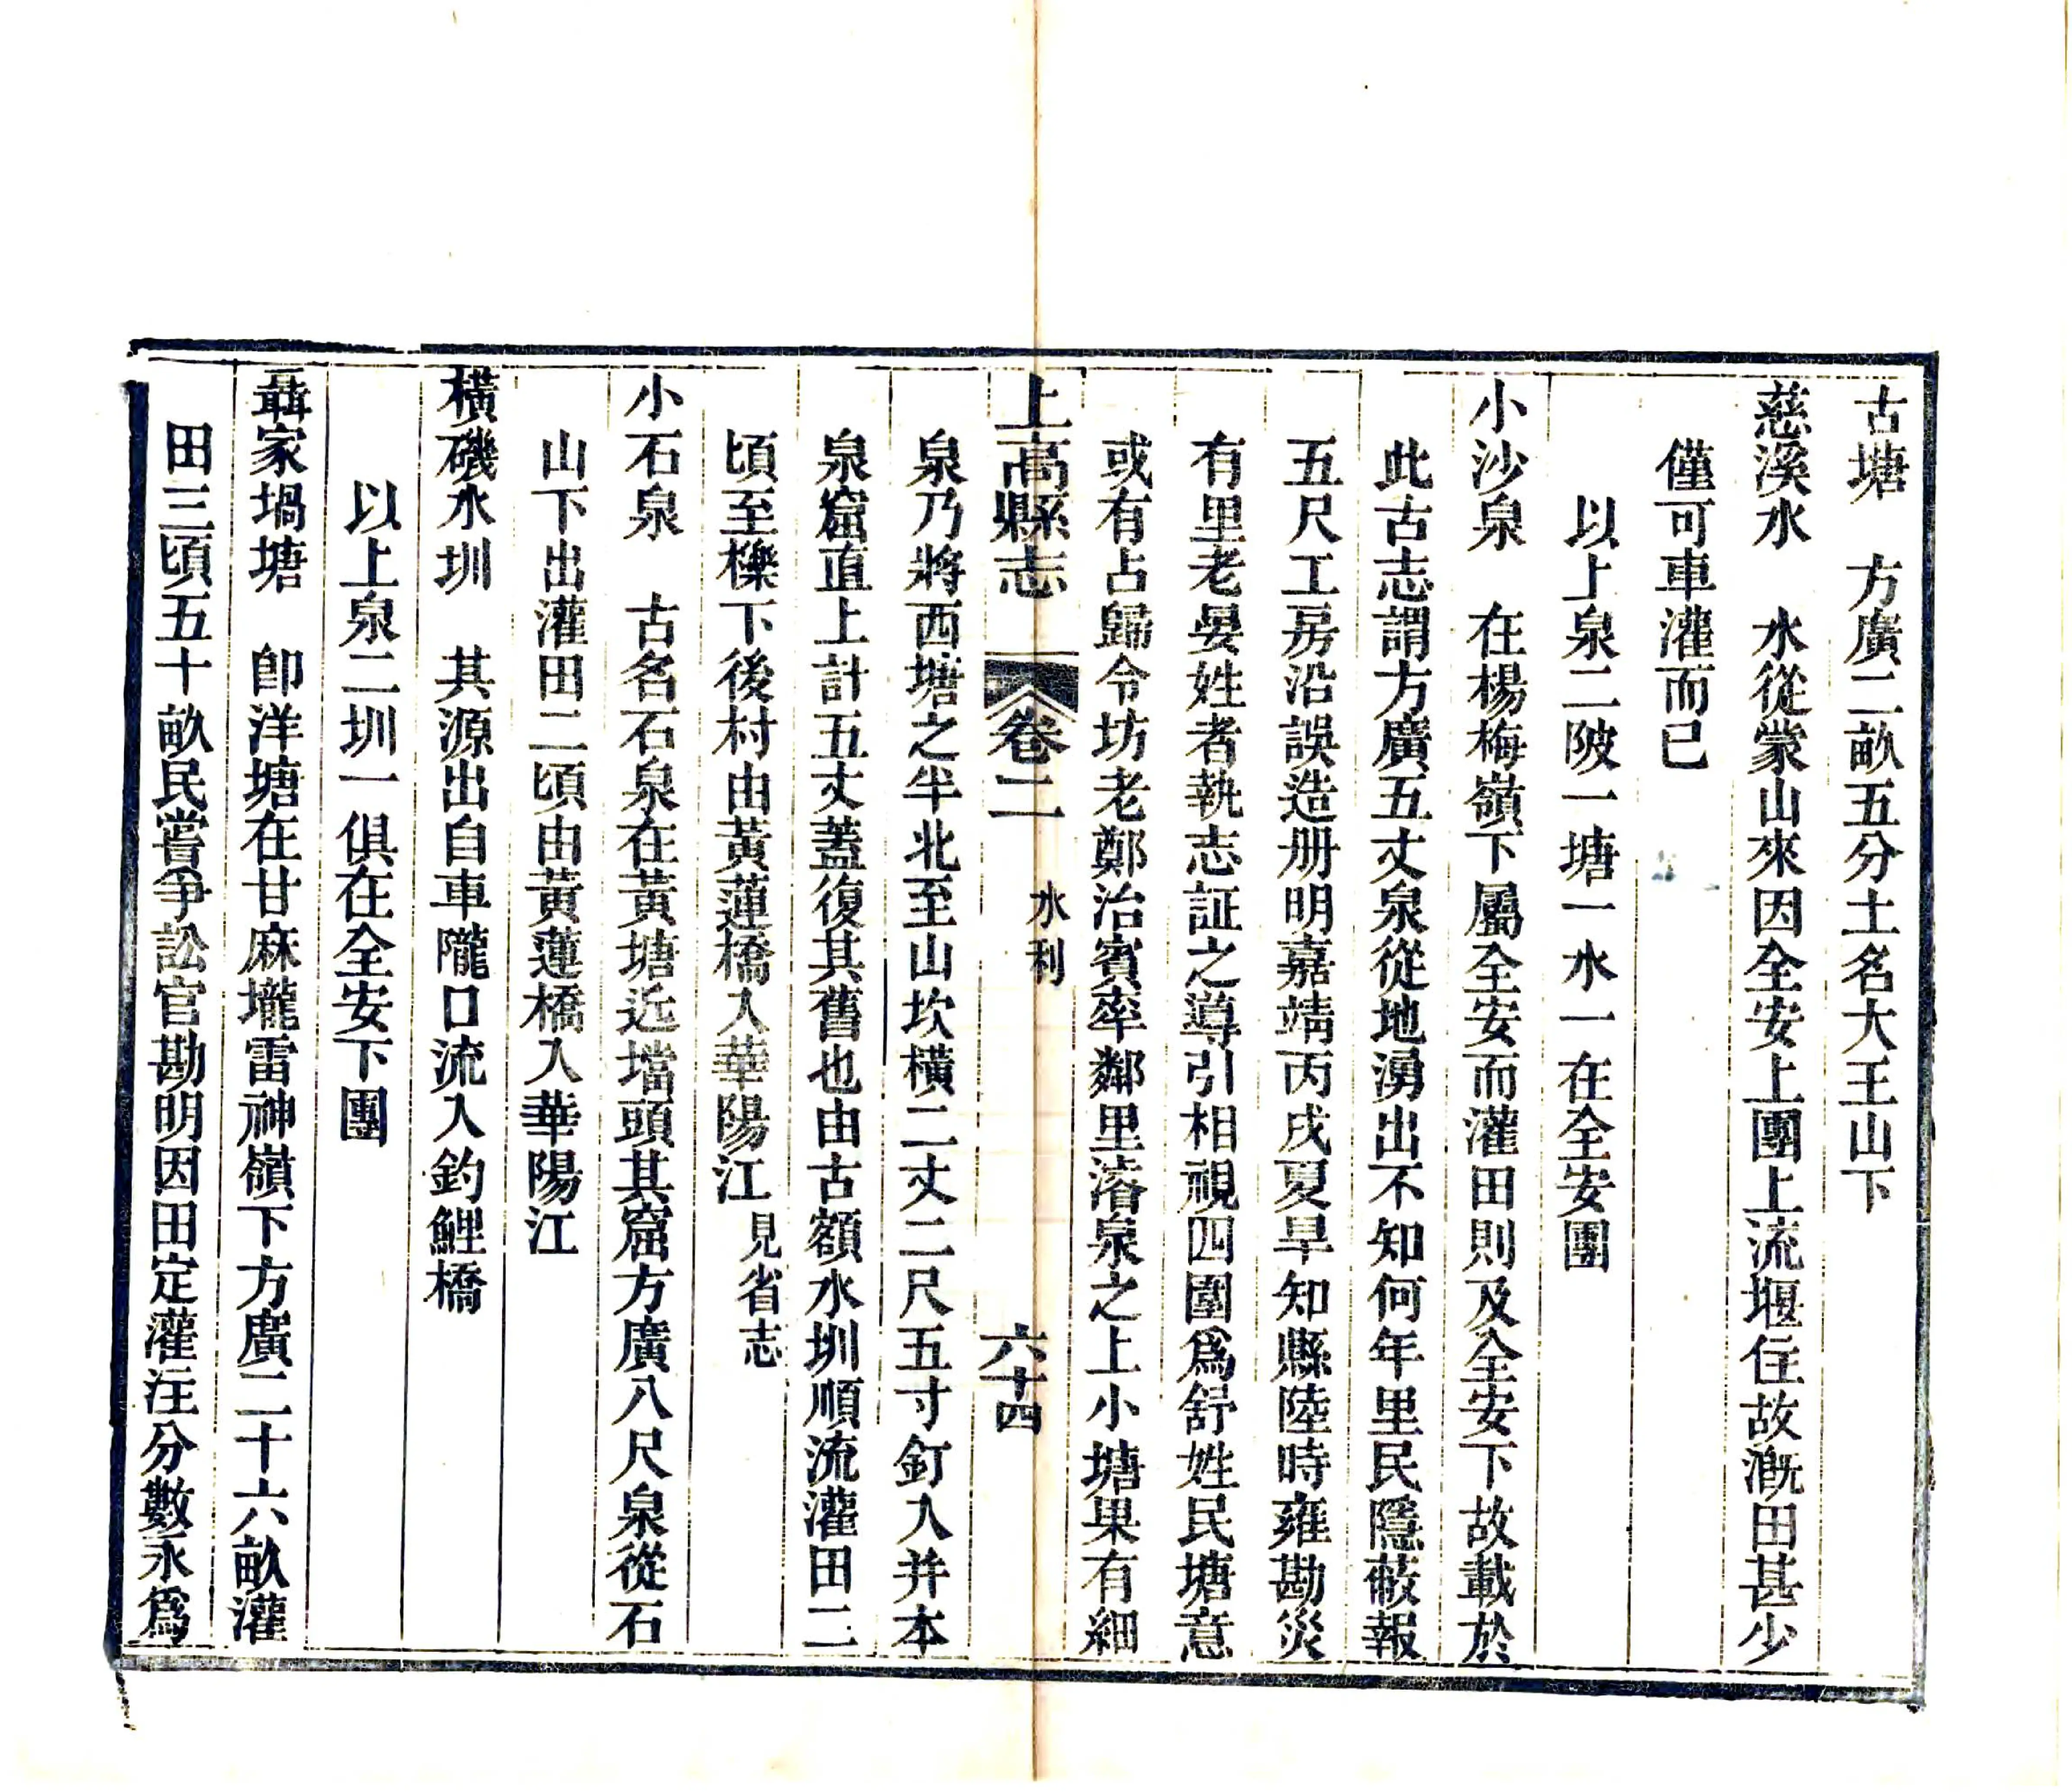 古塘　方廣二畝五分土名大王山下
慈溪水　水從蒙山來因全安上團上流堰住故漑田甚少
僅可車灌而已
以上泉二陂一塘一水一在全安團
小沙泉　在楊梅嶺下屬全安而灌田則及全安下故載於
此古志謂方廣五丈泉從地湧出不知何年里民隱蔽報
五尺工房沿誤造册明嘉靖丙戌夏旱知縣陸時雍勘災
有里老晏姓者執志証之導引相視四圍爲舒姓民塘意
或有占歸令坊老鄭治賓率鄰里濬泉之上小塘果有細
上高縣志　卷二　水利　六十四
泉乃將西塘之半北至山坎橫二丈二尺五寸釘入并本
泉窟直上計五丈蓋復其舊也由古額水圳順流灌田二
頃至檪下後村由黃蓮橋入華陽江見省志
小石泉　古名石泉在黃塘近壋頭其窟方廣八尺泉從石
山下出灌田二頃由黃蓮橋入華陽江
橫磯水圳　其源出自車隴口流入釣鯉橋
以上泉二圳一俱在全安下團
聶家堝塘　卽洋塘在甘麻壠雷神嶺下方廣二十六畝灌
田三頃五十畝民嘗爭訟官勘明因田定灌注分數永爲